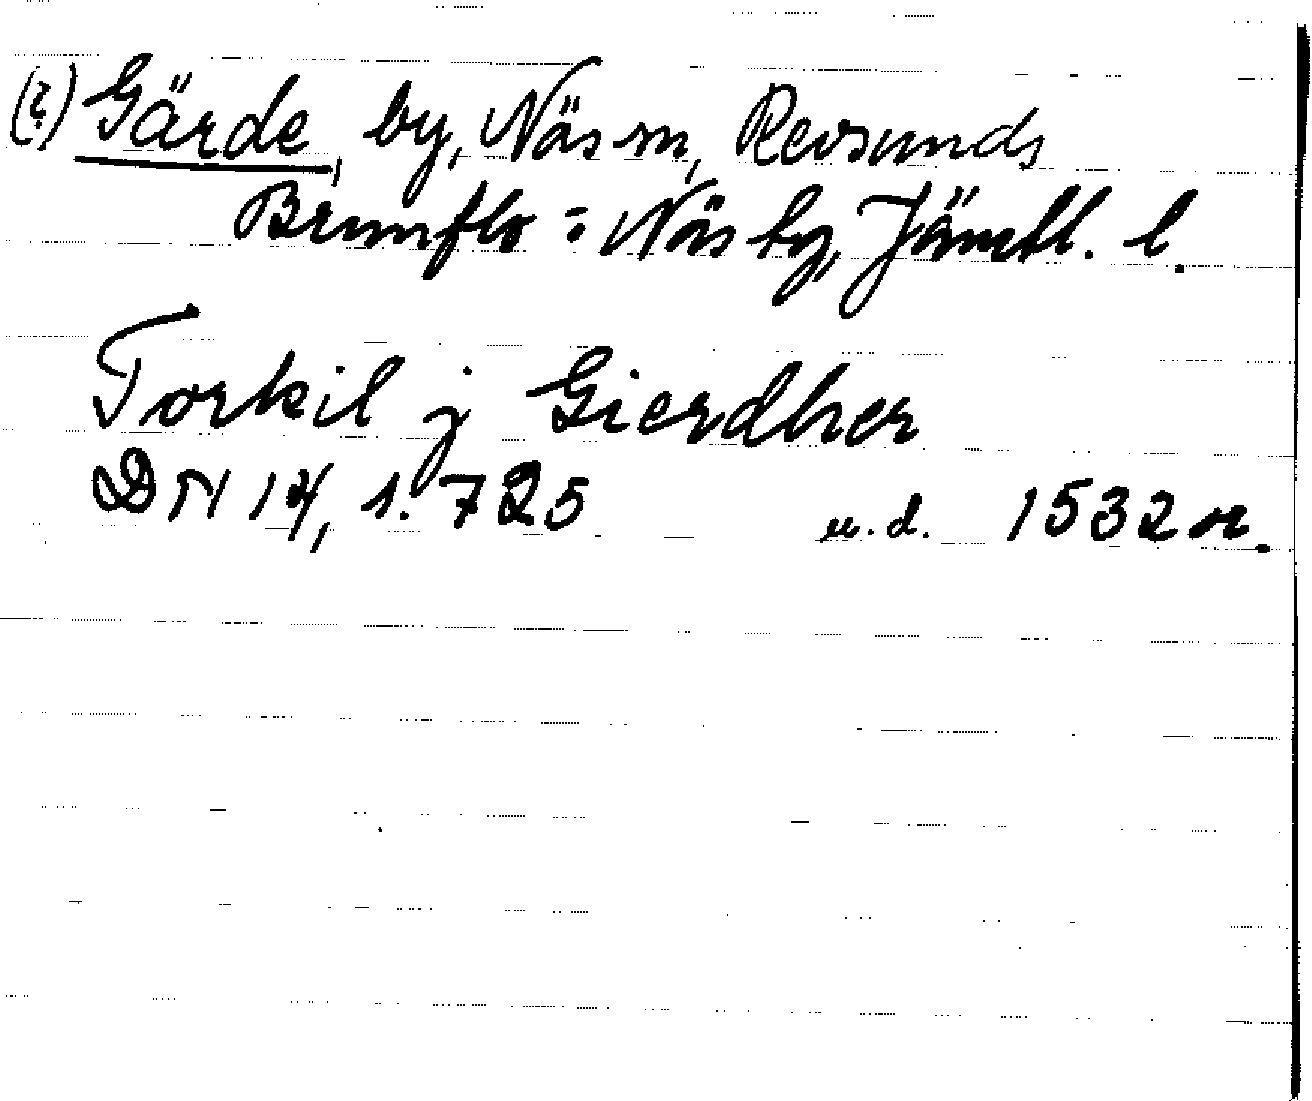 (?) Gärde, by, Näs sn, Revsunds
Brunflo o. Näs tg, Jämtl. l.
Torkil j Gierdher
DN 14, s. 725 u.d. 1532 or.